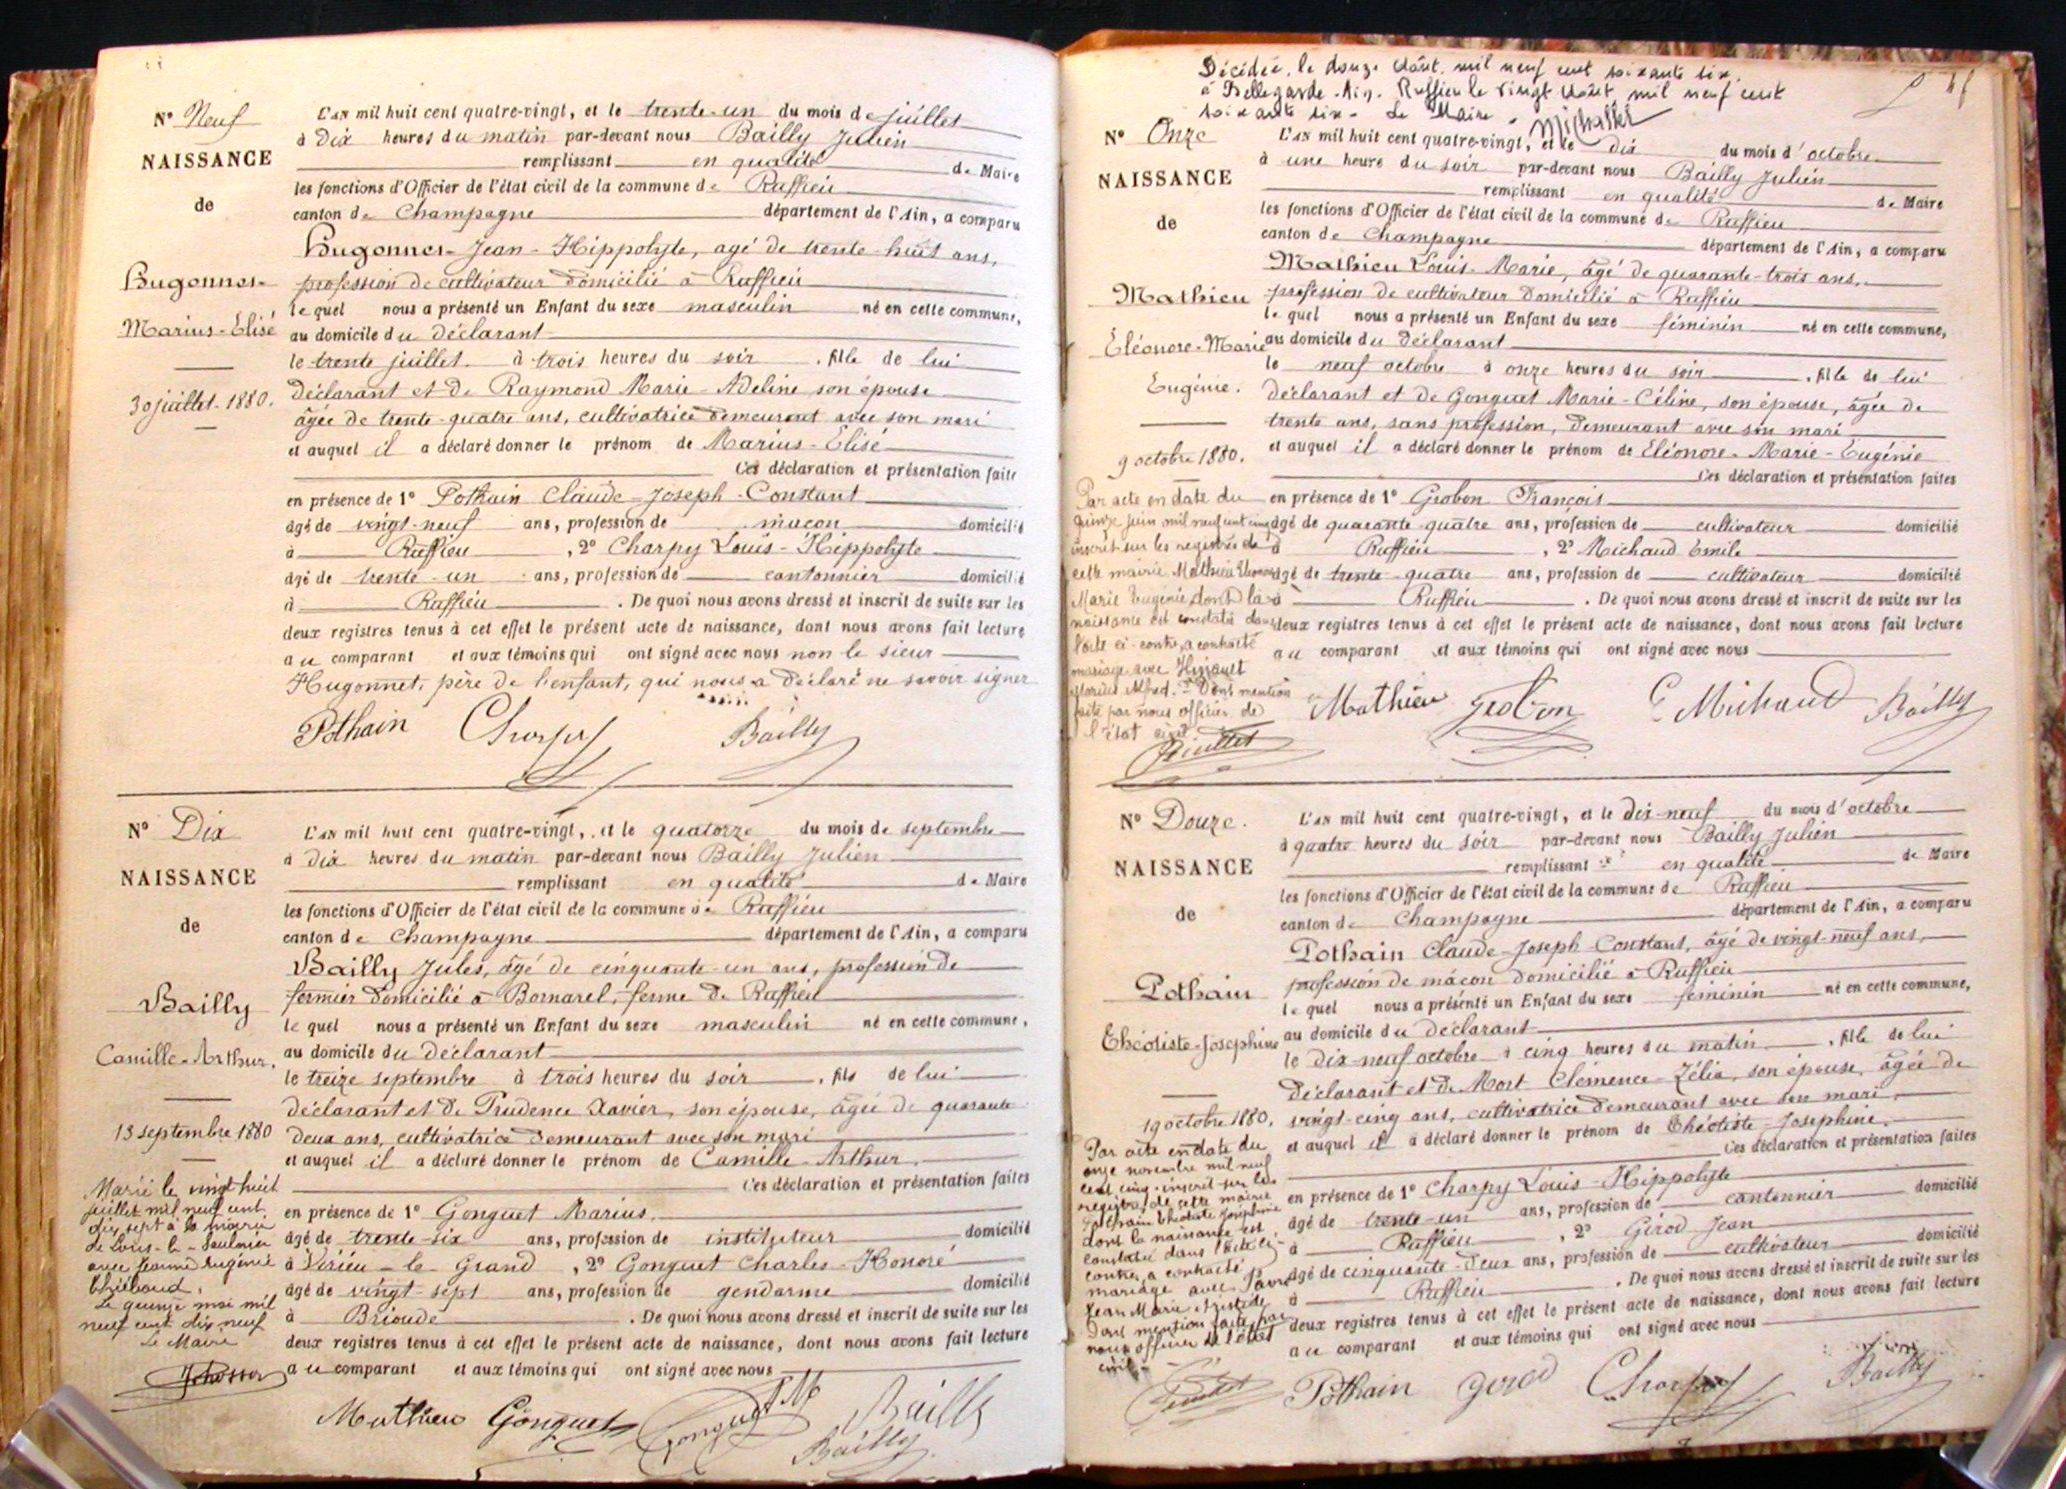 N° Neuf
NAISSANCE
de
Hugonnet
Marius-Elisé
30 juillet 1880.
L'an mil huit cent quatre-vingt, et le trente-un du mois de juillet
à Dix heures du matin par-devant nous Bailly Julien
remplissant en qualité de Maire
les fonctions d'Officier de l'état civil de la commune de Ruffieu
canton de Champagne département de l'Ain, a comparu
Hugonnet Jean-Hippolyte, agé de trente-huit ans,
profession de cultivateur domicilié à Ruffieu
lequel nous a présenté un Enfant du sexe masculin né en cette commune,
au domicile du déclarant
le trente juillet à trois heures du soir, fils de lui
déclarant et de Raymond Marie-Adeline son épouse
âgée de trente-quatre ans, cultivatrice demeurant avec son mari
et auquel il a déclaré donner le prénom de Marius-Elisé
Ces déclaration et présentation faite
en présence de 1° Pothain Claude-Joseph-Constant
âgé de vingt-neuf ans, profession de maçon domicilié
à Ruffieu, 2° Charpy Louis-Hippolyte
âgé de trente-un ans, profession de cantonnier domicilié
à Ruffieu. De quoi nous avons dressé et inscrit de suite sur les
deux registres tenus à cet effet le présent acte de naissance, dont nous avons fait lecture
au comparant et aux témoins qui ont signé avec nous non le sieur
Hugonnet, père de l'enfant, qui nous a déclaré ne savoir signer
Pothain Charpy Bailly
N° Dix
NAISSANCE
de
Bailly
Camille-Arthur.
13 septembre 1880
Marié le vingt huit
juillet mil neuf cent
dix sept à la mairie
de Lons-le-Saulnier
avec Jeanne Eugénie
Thiébaud.
Le quinze mai mil
neuf cent dix neuf
Le Maire
L'an mil huit cent quatre-vingt, et le quatorze du mois de septembre
à dix heures du matin par-devant nous Bailly Julien
remplissant en qualité de Maire
les fonctions d'Officier de l'état civil de la commune de Ruffieu
canton de Champagne département de l'Ain, a comparu
Bailly Jules, âgé de cinquante-un ans, profession de
fermier domicilié à Bornarel, ferme de Ruffieu
lequel nous a présenté un Enfant du sexe masculin né en cette commune,
au domicile du déclarant
le treize septembre à trois heures du soir, fils de lui
déclarant et de Prudence Xavier, son épouse, âgée de quarante
deux ans, cultivatrice demeurant avec son mari
et auquel il a déclaré donner le prénom de Camille-Arthur.
Ces déclaration et présentation faites
en présence de 1° Gonguet Marius
âgé de trente-six ans, profession de instituteur domicilié
à Virieu-le-Grand, 2° Gonguet Charles-Honoré
âgé de vingt-sept ans, profession de gendarme domicilié
à Brioude. De quoi nous avons dressé et inscrit de suite sur les
deux registres tenus à cet effet le présent acte de naissance, dont nous avons fait lecture
au comparant et aux témoins qui ont signé avec nous
Mathieu Gonguet Gonguet Bailly
Bailly
Décédée, le douze Août mil neuf cent soixante six
à Bellegarde-Ain. Ruffieu le vingt Août mil neuf cent
soixante six. Le Maire.
N° Onze
NAISSANCE
de
Mathieu
Éléonore-Marie
Eugénie.
9 octobre 1880.
Par acte en date du
quinze juin mil neuf cent cinq
inscrit sur les registres de
cette mairie Mathieu Eléonore
Marie Eugénie dont la
naissance est constatée dans
l'acte ci-contre, a contracté
mariage avec
Alfred. Dont mention
faite par nous officier de
l'état civil
L'an mil huit cent quatre-vingt, et le dix du mois d'octobre
à une heure du soir par-devant nous Bailly Julien
remplissant en qualité de Maire
les fonctions d'Officier de l'état civil de la commune de Ruffieu
canton de Champagne département de l'Ain, a comparu
Mathieu Louis-Marie, âgé de quarante-trois ans,
profession de cultivateur domicilié à Ruffieu
lequel nous a présenté un Enfant du sexe féminin né en cette commune,
au domicile du déclarant
le neuf octobre à onze heures du soir, fille de lui
déclarant et de Gonguet Marie-Céline, son épouse, âgée de
trente ans, sans profession, demeurant avec son mari
et auquel il a déclaré donner le prénom de Eléonore-Marie-Eugénie
Ces déclaration et présentation faites
en présence de 1° Grobon François
âgé de quarante-quatre ans, profession de cultivateur domicilié
à Ruffieu, 2° Michaud Emile
âgé de trente-quatre ans, profession de cultivateur domicilié
à Ruffieu. De quoi nous avons dressé et inscrit de suite sur les
deux registres tenus à cet effet le présent acte de naissance, dont nous avons fait lecture
au comparant et aux témoins qui ont signé avec nous
Mathieu Grobon E Michaud Bailly
N° Douze.
NAISSANCE
de
Pothain
Théotiste-Joséphine
19 octobre 1880.
Par acte en date du
onze novembre mil neuf
cent cinq inscrit sur les
registres de cette mairie
Pothain Théotiste Joséphine
dont la naissance est
constatée dans l'acte ci-
contre, a contracté
mariage avec
Jean Marie Aristide
dont mention faite par
nous officier de l'état
civil
L'an mil huit cent quatre-vingt, et le dix-neuf du mois d'octobre
à quatre heures du soir par-devant nous Bailly Julien
remplissant en qualité de Maire
les fonctions d'Officier de l'état civil de la commune de Ruffieu
canton de Champagne département de l'Ain, a comparu
Pothain Claude-Joseph-Constant, âgé de vingt-neuf ans,
profession de maçon domicilié à Ruffieu
lequel nous a présenté un Enfant du sexe féminin né en cette commune,
au domicile du déclarant
le dix-neuf octobre à cinq heures du matin, fille de lui
déclarant et de Mort Clémence-Zélia, son épouse, âgée de
vingt-cinq ans, cultivatrice demeurant avec son mari,
et auquel il a déclaré donner le prénom de Théotiste-Joséphine.
Ces déclaration et présentation faites
en présence de 1° Charpy Louis-Hippolyte
âgé de trente-un ans, profession de cantonnier domicilié
à Ruffieu, 2° Girod Jean
âgé de cinquante-deux ans, profession de cultivateur domicilié
à Ruffieu. De quoi nous avons dressé et inscrit de suite sur les
deux registres tenus à cet effet le présent acte de naissance, dont nous avons fait lecture
au comparant et aux témoins qui ont signé avec nous
Pothain Girod Charpy Bailly